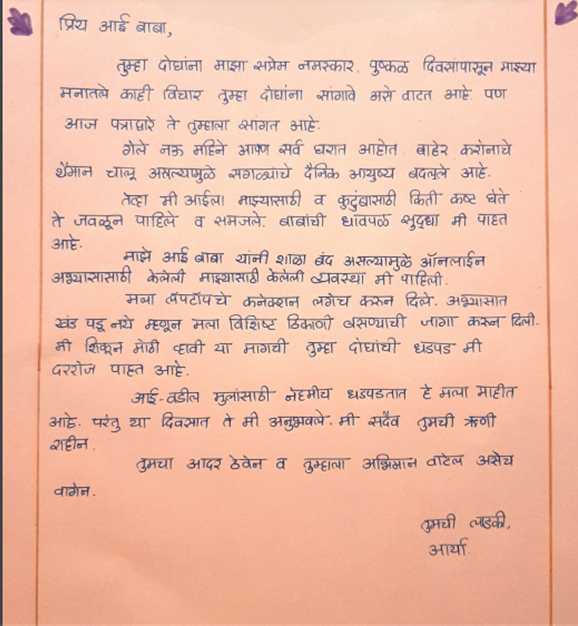 प्रिय आई बाबा,
तुम्हा दोघांना माझा सप्रेम नमस्कार. पुष्कळ दिवसांपासून माझ्या
मनातले काही विचार तुम्हा दोघांना सांगावे असे वाटत आहे. पण
आज पत्राद्वारे ते तुम्हाला सांगत आहे.
गेले नऊ महिने आपण सर्व घरात आहोत. बाहेर करोनाचे
थैमान चालू असल्यामुळे सगळ्यांचे दैनिक आयुष्य बदलले आहे.
तेव्हा मी आईला माझ्यासाठी व कुटुंबासाठी किती कष्ट घेते
ते जवळून पाहिले व समजले. बाबांची धावपळ सुद्धा मी पाहत
आहे.
माझे आई बाबा यांनी शाळा बंद असल्यामुळे ऑनलाईन
अभ्यासासाठी केलेली माझ्यासाठी केलेली व्यवस्था मी पाहिली.
मला लॅपटॉपचे कनेक्शन लगेच करून दिले. अभ्यासात
खंड पडू नये म्हणून मला विशिष्ट ठिकाणी बसण्याची जागा करून दिली.
मी शिकून मोठी व्हावी या मागची तुम्हा दोघांची धडपड मी
दररोज पाहत आहे.
आई-वडील मुलांसाठी नेहमीच धडपडतात हे मला माहीत
आहे. परंतु या दिवसात ते मी अनुभवले. मी सदैव तुमची ऋणी
राहीन.
तुमचा आदर ठेवेन व तुम्हाला अभिमान वाटेल असेच
वागेन.
तुमची लाडकी,
आर्या